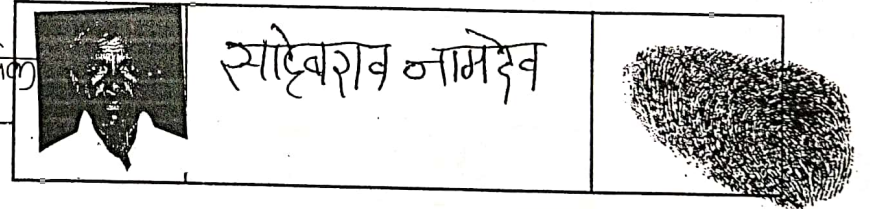 साहेबराव नामदेव